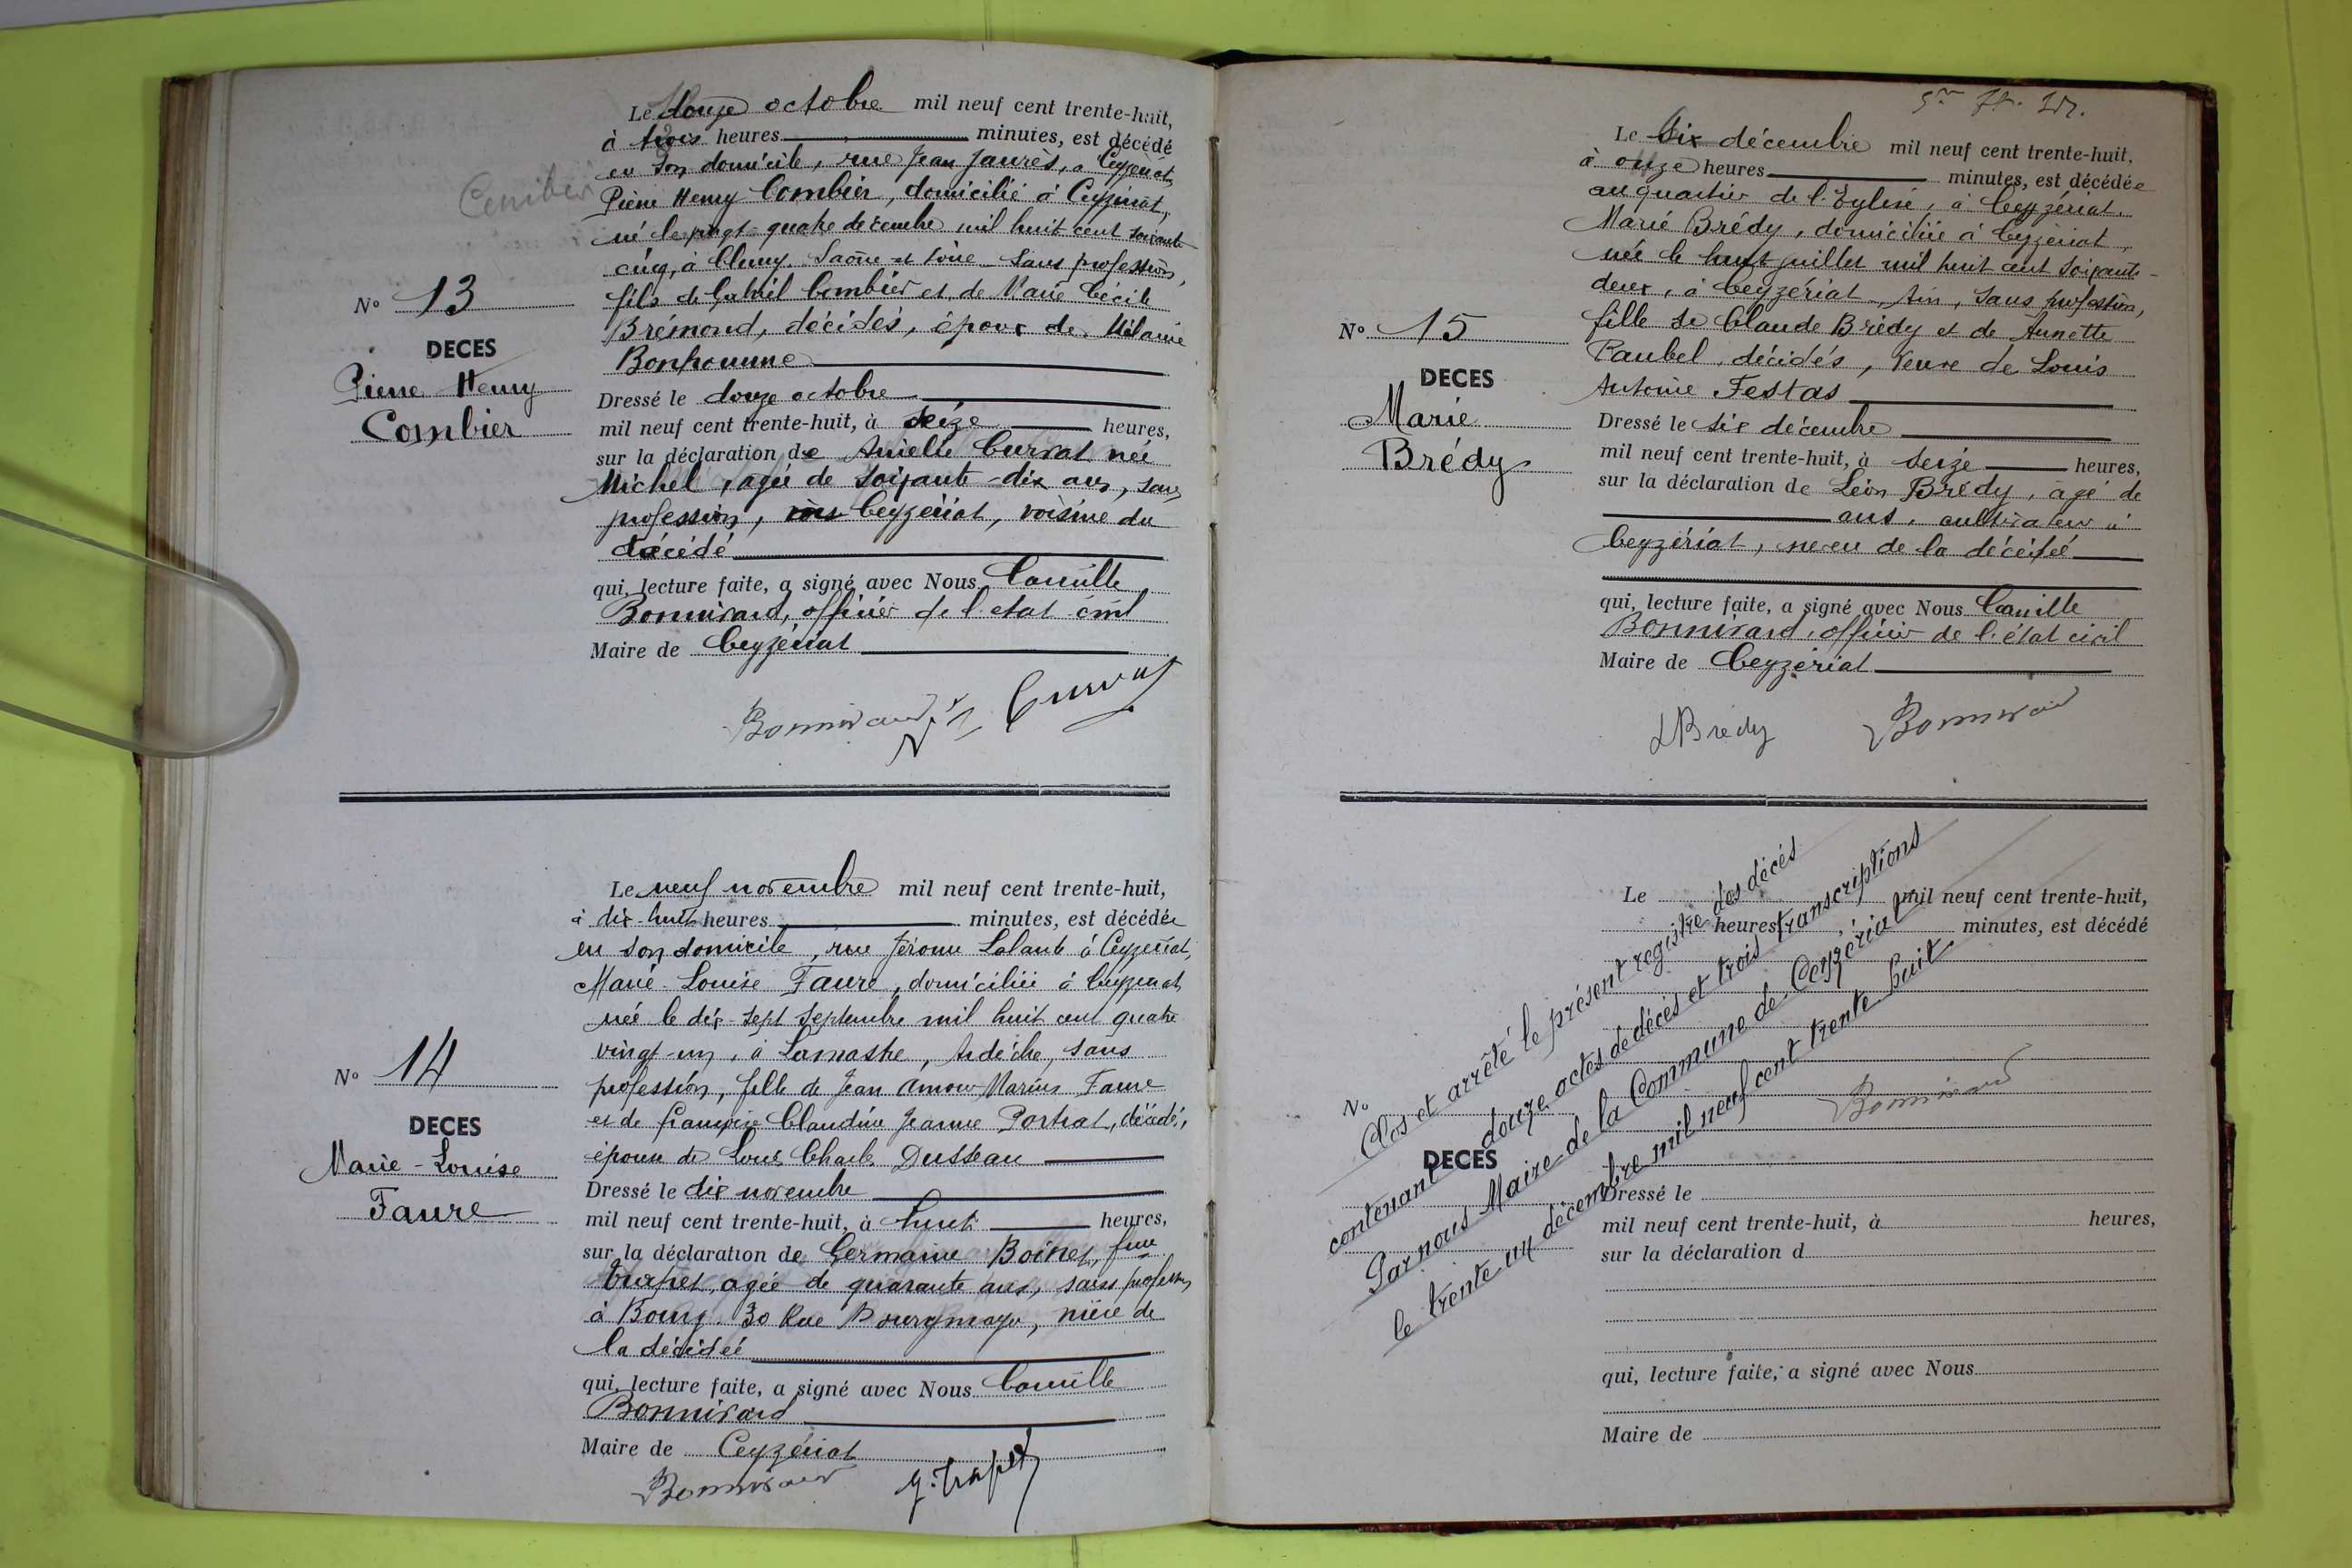 Le douze octobre mil neuf cent trente-huit,
à trois heures minutes, est décédé
en son domicile, rue Jean Jaurès, à Ceyzériat,
Pierre Henry Combier, domicilié à Ceyzériat,
né le vingt-quatre décembre mil huit cent soixante
cinq, à Cluny, Saône et Loire sans profession,
fils de Gabriel Combier et de Marie Cécile
Brémond, décédés, époux de Mélanie
Bonhomme
Combier
N° 13
DECES
Pierre Henry
Combier
Dressé le douze octobre
mil neuf cent trente-huit, à seize heures,
sur la déclaration de Amélie Curvat née
Michel, agée de soixante-dix ans, sans
profession, Ceyzériat, voisine du
décédé
qui, lecture faite, a signé avec Nous Camille
Bonnivard, officier de l'etat civil
Maire de Ceyzériat
Bonnivard Curvat
Le neuf novembre mil neuf cent trente-huit,
à dix-huit heures minutes, est décédée
en son domicile, rue Jérome Lalande à Ceyzériat,
Marie-Louise Faure, domiciliée à Ceyzériat
née le dix-sept septembre mil huit cent quatre
vingt-un, à Lamastre, Ardèche, sans
profession, fille de Jean Amour Marius Faure
et de Françoise Claudine Jeanne Portrat, décédés,
épouse de Louis Charles Dusseau
N° 14
DECES
Marie-Louise
Faure
Dressé le dix novembre
mil neuf cent trente-huit, à huit heures,
sur la déclaration de Germaine Boiner, fme
Trapet, agée de quarante ans, sans profession
à Bourg 30 Rue Bourgmayer, nièce de
la décédée
qui, lecture faite, a signé avec Nous Camille
Bonnivard
Maire de Ceyzériat
Bonnivard G. Trapet
Le six décembre mil neuf cent trente-huit,
à onze heures minutes, est décédée
au quartier de l'Eglise, à Ceyzériat.
Marie Brédy, domiciliée à Ceyzériat,
née le huit juillet mil huit cent soixante-
deux, à Ceyzériat, Ain, sans profession,
fille de Claude Brédy et de Annette
Paubel, décédés, Veuve de Louis
Antoine Festas
N° 15
DECES
Marie
Brédy
Dressé le six décembre
mil neuf cent trente-huit, à seize heures,
sur la déclaration de Léon Brédy, agé de
ans, cultivateur à
Ceyzériat, neveu de la décédée
qui, lecture faite, a signé avec Nous Camille
Bonnivard, officier de l'état civil
Maire de Ceyzériat
LBredy Bonnivard
Le mil neuf cent trente-huit,
heures minutes, est décédé
N°
DECES
Clos et arrêté le présent registre des décès
contenant douze actes de décès et trois transcriptions
Par nous Maire de la Commune de Ceyzériat
le trente un décembre mil neuf cent trente huit
Bonnivard
Dressé le
mil neuf cent trente-huit, à heures,
sur la déclaration d
qui, lecture faite, a signé avec Nous
Maire de